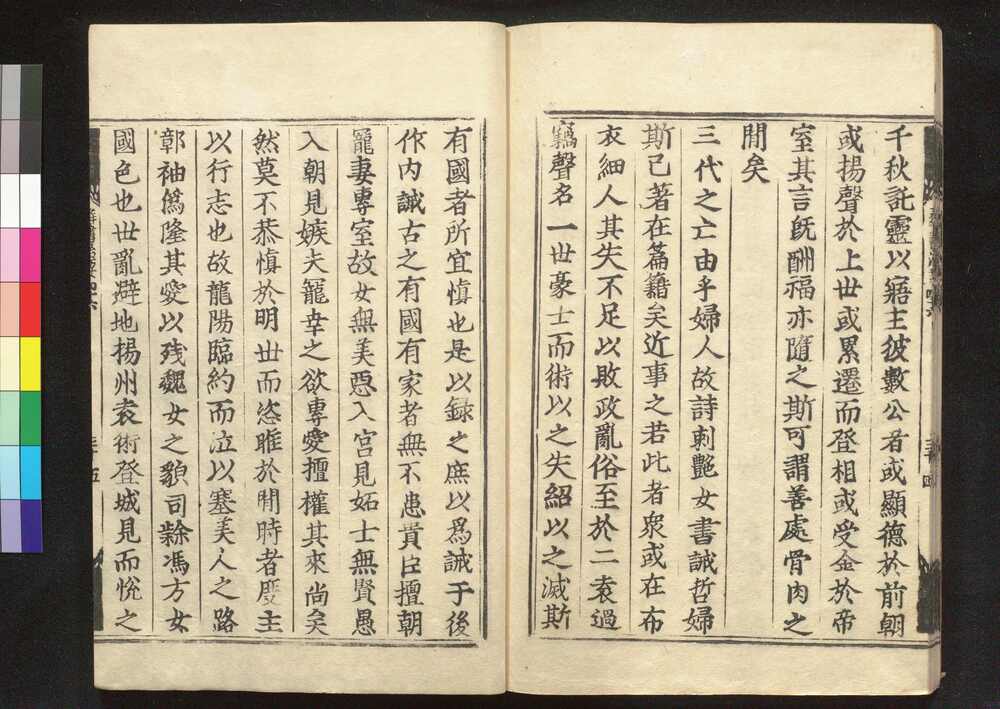 千秋託靈以寤主彼數公者或顯德於前朝
或揚聲於上世或累遷而登相或受金於帝
室其言既酬福亦隨之斯可謂善處骨肉之
間矣
三代之亡由乎婦人故詩刺艷女書誡哲婦
斯已著在篇籍矣近事之若此者衆或在布
衣細人其失不足以敗政亂俗至於二袁過
竊聲名一世豪士而術以之失紹以之滅斯
有國者所宜慎也是以録之庶以爲誡于後
作内誡古之有國有家者無不患貴臣擅朝
寵妻專室故女無美惡入宮見妬士無賢愚
入朝見嫉夫寵幸之欲專愛擅權其來尚矣
然莫不恭慎於明世而恣睢於閒時者度主
以行志也故龍陽臨釣而泣以塞美人之路
鄣袖僞隆其愛以残魏女之貌司隸馮方女
國色也世亂避地揚州袁術登城見而悅之